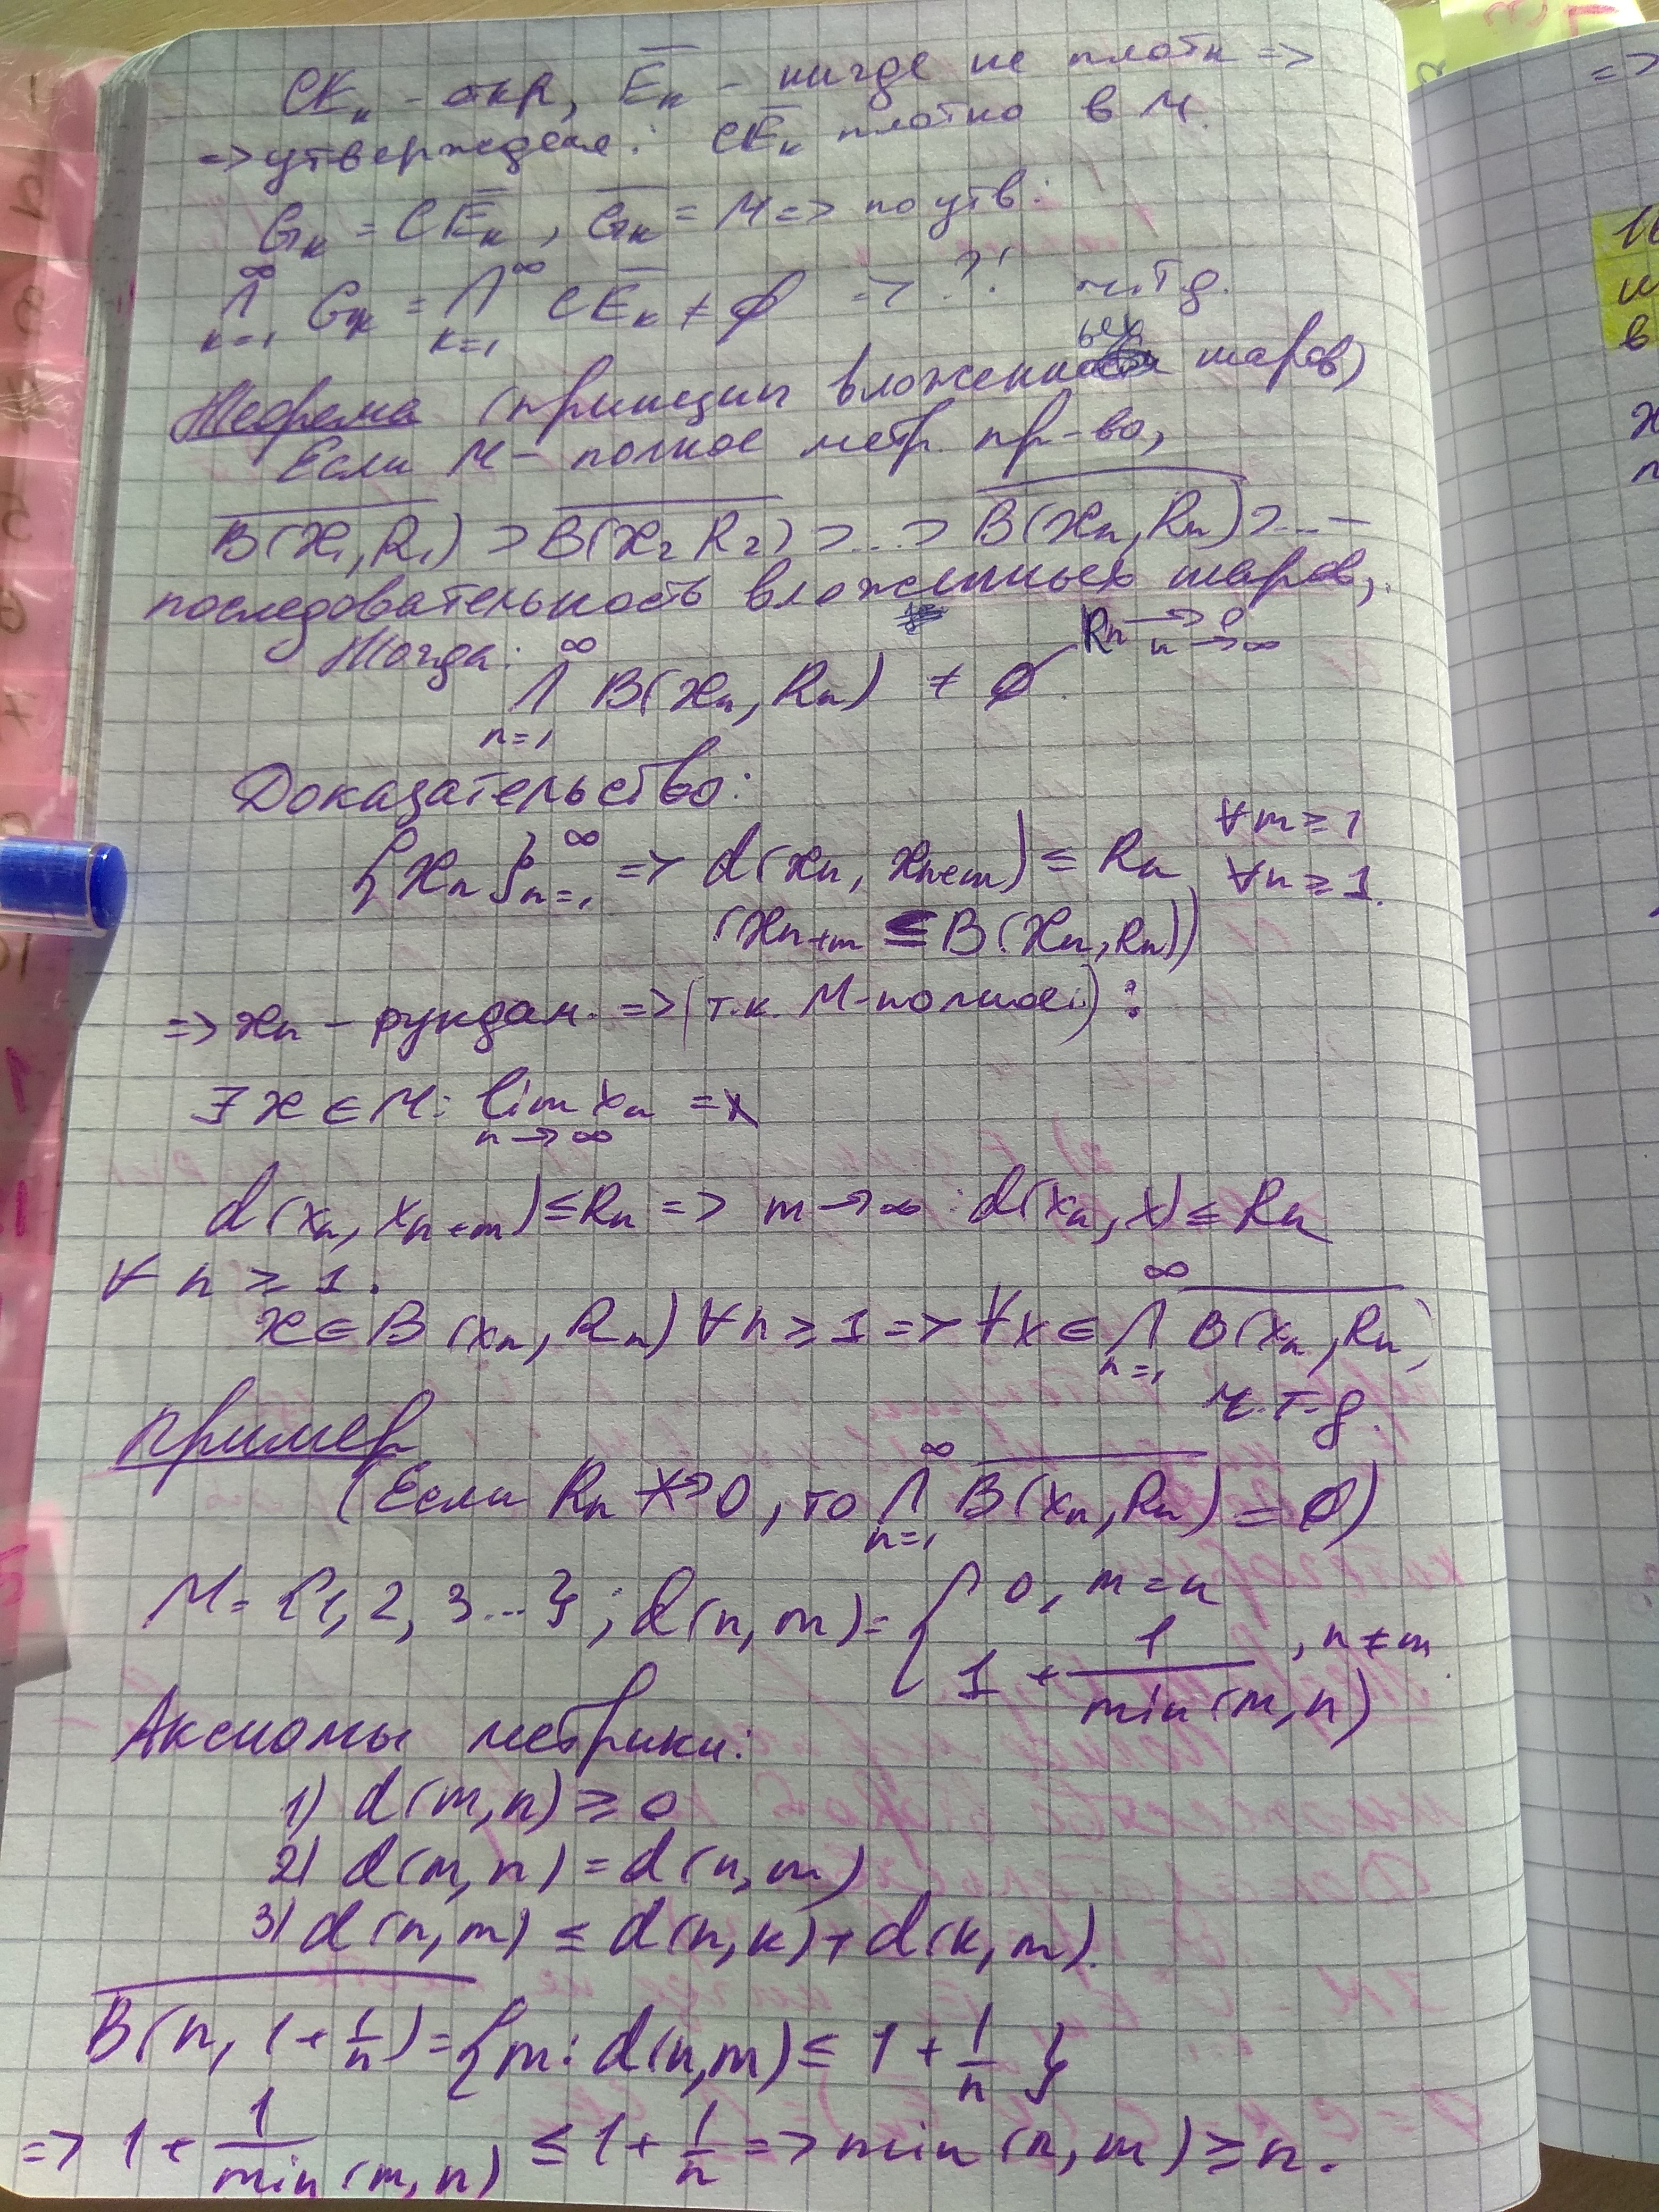 CE̅ₖ - откр, E̅ₖ - нигде не плотн =>
=> утверждение: CE̅ₖ плотно в M.
Gₖ = CE̅ₖ, G̅ₖ = M => по утв:
⋂_{k=1}^∞ Gₖ = ⋂_{k=1}^∞ CE̅ₖ ≠ ∅ => ?! ч.т.д.
Теорема (принцип вложенных шаров)
Если M - полное метр. пр-во,
\overline{B(x₁, R₁)} ⊃ \overline{B(x₂ R₂)} ⊃ ... ⊃ \overline{B(xₙ, Rₙ)} ⊃ ... -
последовательность вложенных шаров,
Rₙ → 0, n → ∞
Тогда: ⋂_{n=1}^∞ B(xₙ, Rₙ) ≠ ∅.
Доказательство:
{xₙ}_{n=1}^∞ => d(xₙ, xₙ₊ₘ) ≤ Rₙ ∀m ≥ 1
∀n ≥ 1.
(xₙ₊ₘ ∈ B(xₙ, Rₙ))
=> xₙ - фундам. => (т.к. M - полное) :
∃ x ∈ M: lim_{n→∞} xₙ = x
d(xₙ, xₙ₊ₘ) ≤ Rₙ => m → ∞ : d(xₙ, x) ≤ Rₙ
∀ n ≥ 1.
x ∈ B(xₙ, Rₙ) ∀n ≥ 1 => ∀x ∈ ⋂_{n=1}^∞ \overline{B(xₙ, Rₙ)}
ч.т.д.
Пример
(Если Rₙ ↛ 0, то ⋂_{n=1}^∞ \overline{B(xₙ, Rₙ)} = ∅)
M = {1, 2, 3...}; d(n, m) = { 0, m = n
1 + 1/min(m, n), n ≠ m
Аксиомы метрики:
1) d(m, n) ≥ 0
2) d(m, n) = d(n, m)
3) d(n, m) ≤ d(n, k) + d(k, m).
\overline{B(n, 1 + 1/n)} = {m: d(n, m) ≤ 1 + 1/n}
=> 1 + 1/min(m, n) ≤ 1 + 1/n => min(n, m) ≥ n.